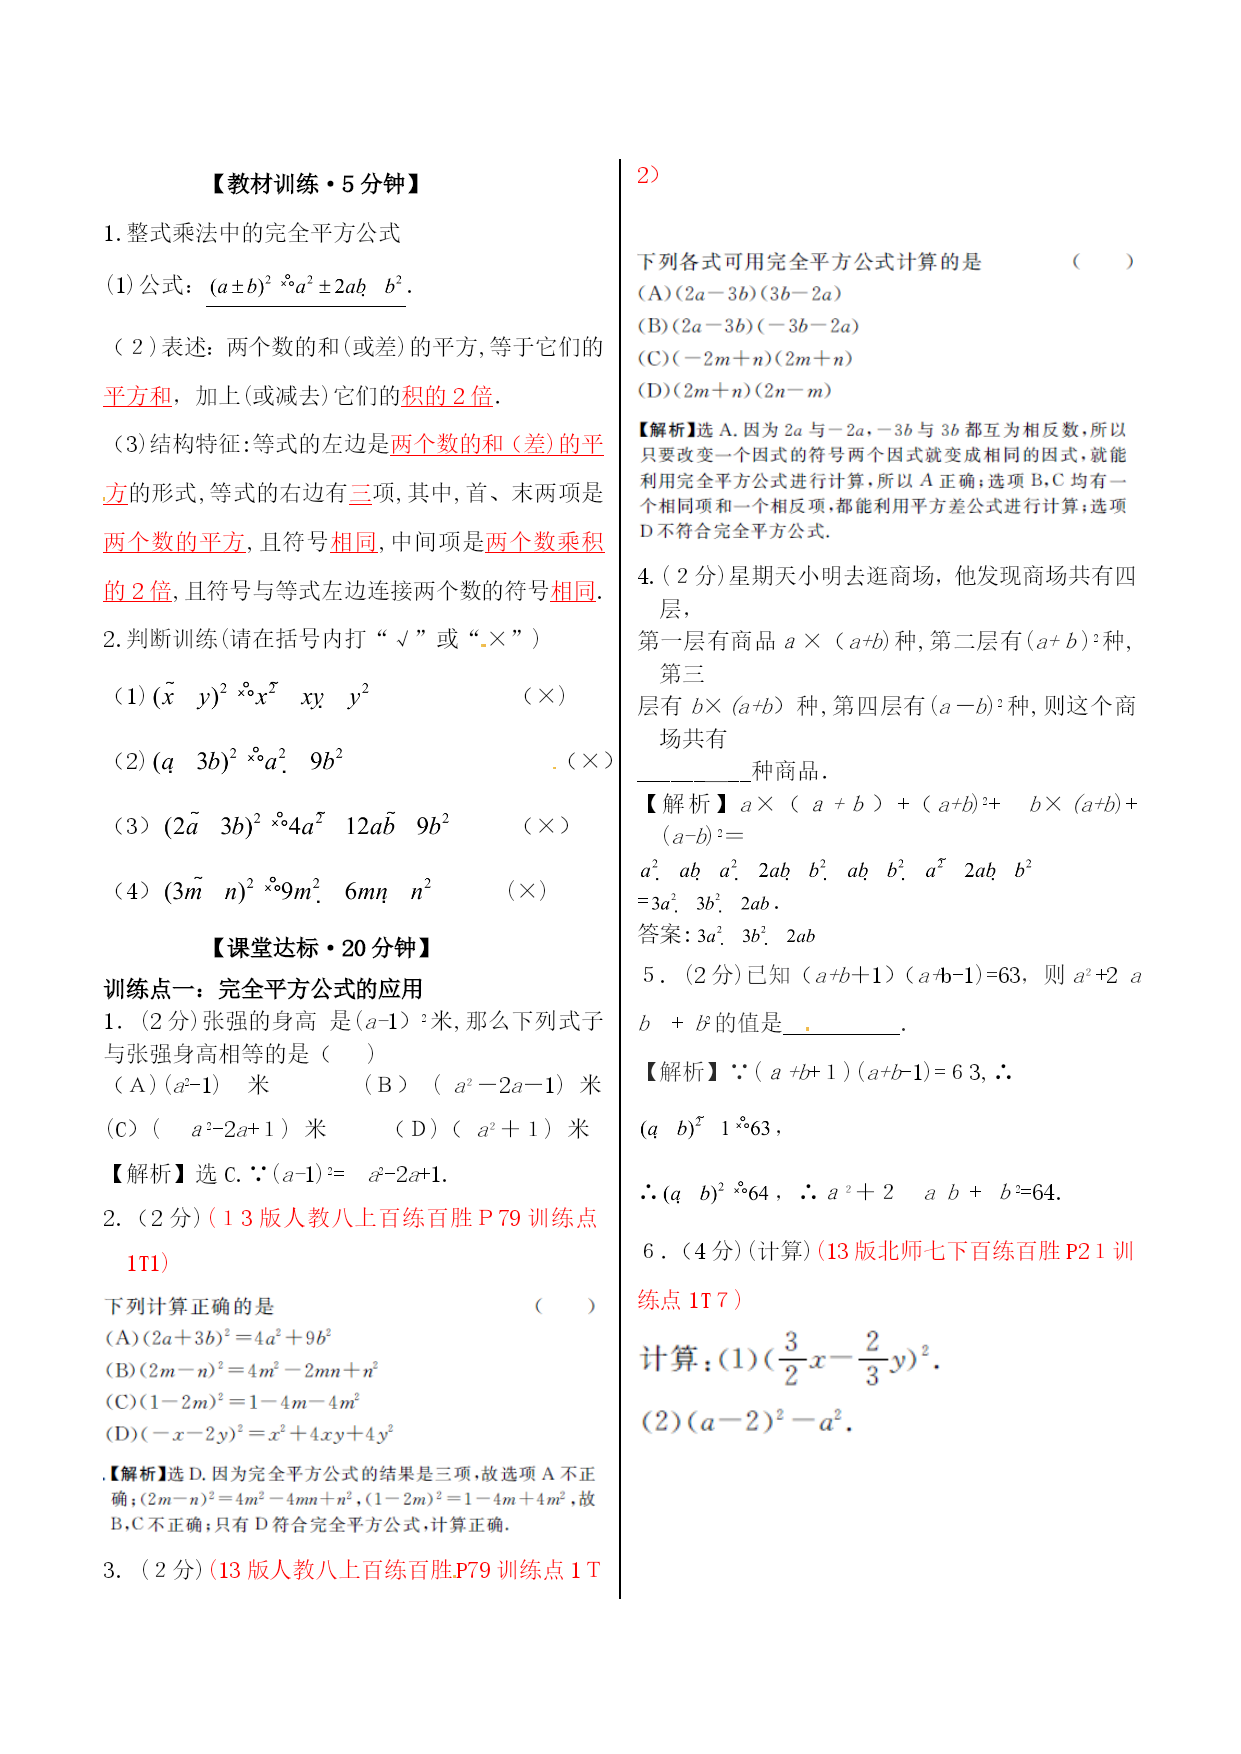 【教材训练·5 分钟】
1.整式乘法中的完全平方公式
(1)公式：(a±b)²=a²±2ab+b².
（2）表述：两个数的和(或差)的平方,等于它们的
平方和，加上(或减去)它们的积的２倍.
（3)结构特征:等式的左边是两个数的和（差)的平
方的形式,等式的右边有三项,其中,首、末两项是
两个数的平方,且符号相同,中间项是两个数乘积
的２倍,且符号与等式左边连接两个数的符号相同.
2.判断训练(请在括号内打“√”或“×”)
（1)(x y)² x² xy y² （×)
（2)(a 3b)² a² 9b² （×）
（3）(2a 3b)² 4a² 12ab 9b² （×）
（4）(3m n)² 9m² 6mn n² (×)
【课堂达标·20 分钟】
训练点一：完全平方公式的应用
1. (2分)张强的身高 是(a-1）²米,那么下列式子
与张强身高相等的是（ )
（A)(a²-1) 米 （B）（ a²－2a－1) 米
(C）( a²-2a+1）米 （D)（ a²＋1）米
【解析】选 C.∵(a-1)²= a²-2a+1.
2.（2分)(１3版人教八上百练百胜Ｐ79 训练点
1T1)
下列计算正确的是 ( )
(A)(2a+3b)²=4a²+9b²
(B)(2m-n)²=4m²-2mn+n²
(C)(1-2m)²=1-4m-4m²
(D)(-x-2y)²=x²+4xy+4y²
【解析】选 D.因为完全平方公式的结果是三项,故选项 A 不正
确;(2m-n)²=4m²-4mn+n²,(1-2m)²=1-4m+4m²,故
B,C不正确;只有 D 符合完全平方公式,计算正确.
3.（２分)(13版人教八上百练百胜P79 训练点 1Ｔ
2）
下列各式可用完全平方公式计算的是 ( )
(A)(2a-3b)(3b-2a)
(B)(2a-3b)(-3b-2a)
(C)(-2m+n)(2m+n)
(D)(2m+n)(2n-m)
【解析】选 A.因为 2a 与-2a,-3b 与 3b 都互为相反数,所以
只要改变一个因式的符号两个因式就变成相同的因式,就能
利用完全平方公式进行计算,所以 A 正确;选项 B,C 均有一
个相同项和一个相反项,都能利用平方差公式进行计算;选项
D 不符合完全平方公式.
4.(２分)星期天小明去逛商场，他发现商场共有四
层，
第一层有商品 a ×（a+b)种,第二层有(a+ｂ)²种,
第三
层有 b×(a+b）种,第四层有(a－b)²种,则这个商
场共有
__________种商品.
【解析】a×（ a＋b）+（a+b)²+ b×(a+b)+
(a-b)²=
a² ab a² 2ab b² ab b² a² 2ab b²
=3a² 3b² 2ab.
答案:3a² 3b² 2ab
５.(2分)已知（a+b＋1）（a+b-1)=63，则 a²+2 a
b + b²的值是__________.
【解析】∵(ａ+b+１)(a+b-1)=６3,∴
(a b)² 1 63，
∴(a b)² 64，∴a²＋２ a b + b²=64.
６.（4分)(计算)(13版北师七下百练百胜P2１训
练点 1T７）
计算:(1)(3/2x-2/3y)².
(2)(a-2)²-a².